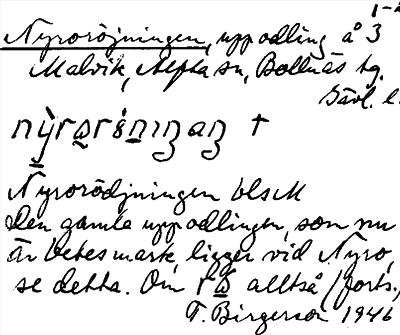 1-2
Nyroröjningen, uppodling å 3
Malvik, Alfta sn, Bollnäs tg.
Gävl. l.
Nyrorödjningen blsM
Den gamla uppodlingen, som nu
är betesmark, ligger vid Nyro,
se detta. Om alltså (forts.)
T. Birgerson 1946